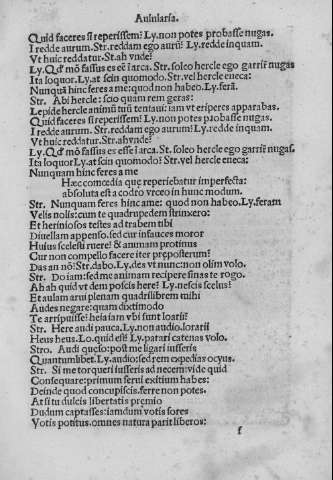 Aulularia.
Quid faceres si reperissem? Ly.non potes probasse nugas.
I redde aurum. Str.reddam ego aurũ? Ly.redde inquam.
Vt huic reddatur. St.ah vnde?
Ly.Qd' mõ fassus es eẽ ĩ arca. Str.soleo hercle ego garrir' nugas
Ita loquor. Ly.at scin quomodo. Str.vel hercle eneca:
Nunquã hinc feres a me: quod non habeo. Ly.ferã.
Str. Abi hercle: scio quam rem geras:
Lepide hercle animũ tuũ tentaui: iam vt eriperes apparabas.
Quid faceres si reperissem? Ly.non potes probasse nugas.
I redde aurum. Str.reddam ego aurum? Ly.redde inquam.
Vt huic reddatur. Str.ah vnde?
Ly.Qd' mõ fassus es esse ĩ arca. St.soleo hercle ego garrir' nugas.
Ita loquor Ly.at scin quomodo? Str.vel hercle eneca:
Nunquam hinc feres a me
Hæc comœdia que reperiebatur imperfecta:
absoluta est a codro vrceo in hunc modum.
Str. Nunquam feres hinc a me: quod non habeo. Ly.feram
Velis nolis: cum te quadrupedem strinxero:
Et herniosos testes ad trabem tibi
Diuellam appenso. sed cur in fauces moror
Huius scelesti ruere? & animam protinus
Cur non compello facere iter preposterum?
Das an nõ? Str.dabo. Ly.des vt nunc: non olim volo.
Str. Do iam: sed me animam recipere sinas te rogo.
Ah ah quid vt dem poscis here? Ly.nescis scelus?
Et aulam arui plenam quadrilibrem mihi
Audes negare: quam dixti modo
Te arripuisse? heia iam vbi sunt lorarii?
Str. Here audi pauca. Ly.non audio. lorarii
Heus heus. Lo.quid est? Ly.patari catenas volo.
Stro. Audi queso: post me ligari iusseris
Quantumlibet. Ly.audio: sed rem expedias ocyus.
Str. Si me torqueri iusseris ad necem: vide quid
Consequare: primum serui exitium habes:
Deinde quod concupiscis. ferre non potes.
At si tu dulcis libertatis premio
Dudum captasses: iamdum votis fores
Votis potitus. omnes natura parit liberos:
f